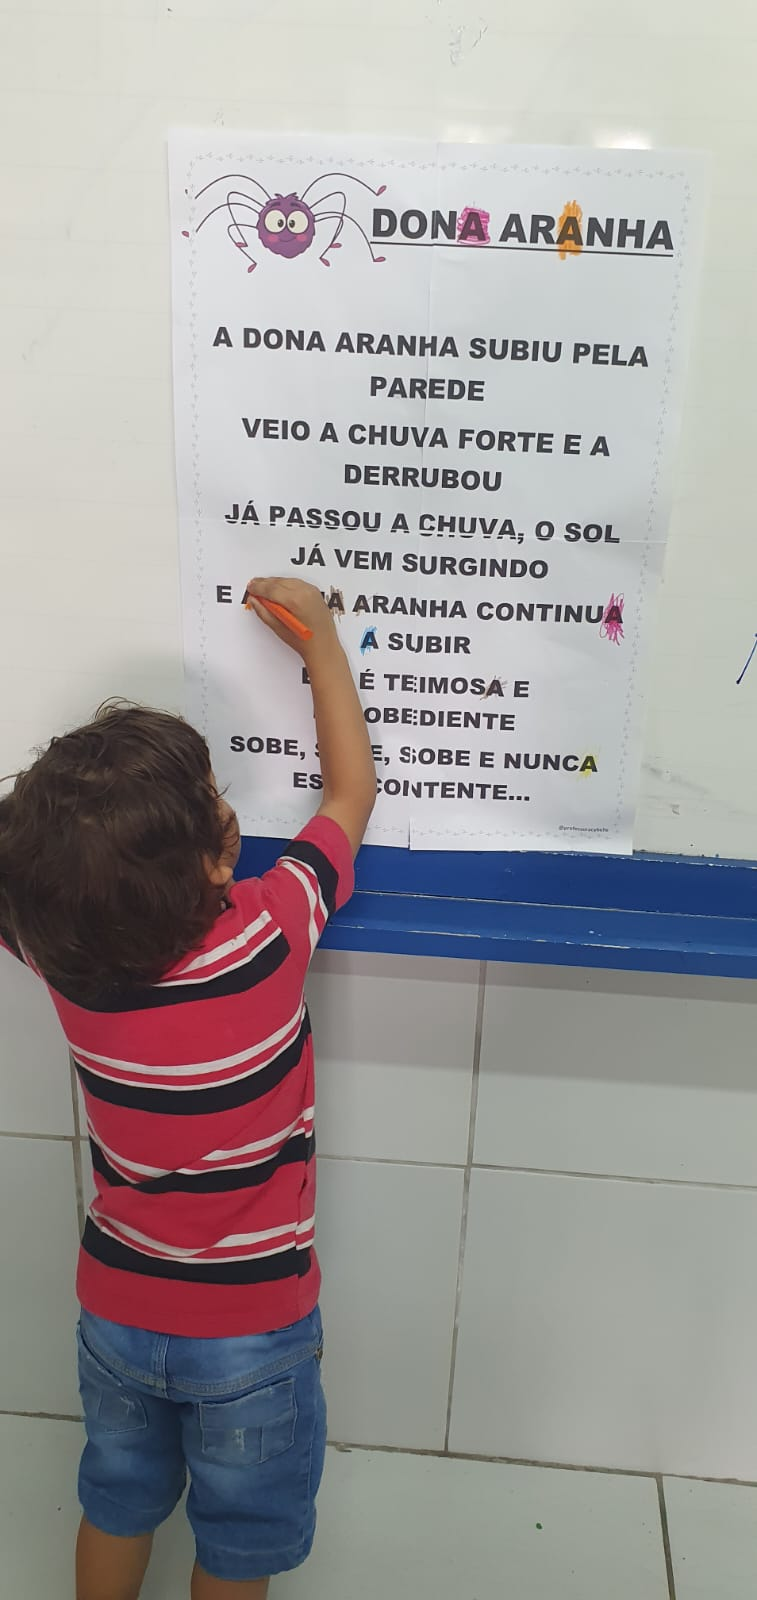 DONA ARANHA
A DONA ARANHA SUBIU PELA
PAREDE
VEIO A CHUVA FORTE E A
DERRUBOU
JÁ PASSOU A CHUVA, O SOL
JÁ VEM SURGINDO
E A ARANHA CONTINUA
A SUBIR
É TEIMOSA E
OBEDIENTE
SOBE, SOBE E NUNCA
CONTENTE...